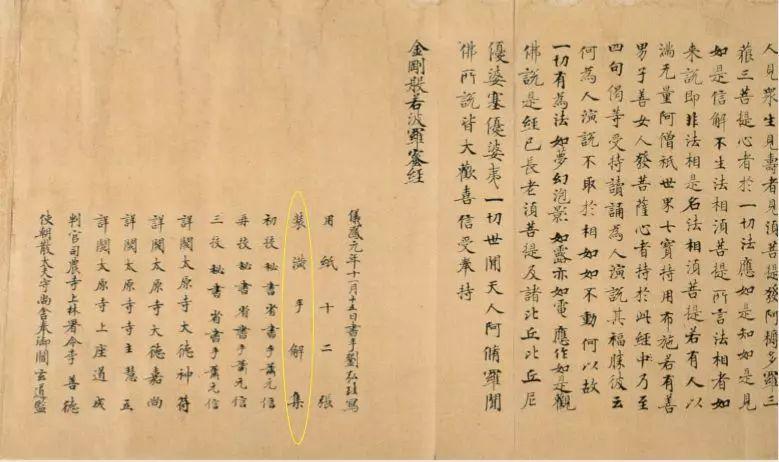 人見眾生見壽者見須菩提發阿耨多羅三
藐三菩提心者於一切法應如是知如是見
如是信解不生法相須菩提所言法相者如
来說即非法相是名法相須菩提若有人以
滿无量阿僧祇世界七寶持用布施若有善
男子善女人發菩薩心者持於此經中乃至
四句偈等受持讀誦為人演說其福勝彼云
何為人演說不取於相如如不動何以故
一切有為法如夢幻泡影如露亦如電應作如是觀
佛說是經已長老須菩提及諸比丘比丘尼
優婆塞優婆夷一切世間天人阿脩羅聞
佛所說皆大歡喜信受奉持
金剛般若波羅蜜經
儀鳳元年十一月十五日書手劉弘珪寫
用紙十二張
裝潢手解集
初校秘書省書手蕭元信
再校秘書省書手蕭元信
三校秘書省書手蕭元信
詳閱太原寺大德神符
詳閱太原寺大德嘉尚
詳閱太原寺寺主慧立
詳閱太原寺上座道成
判官司農寺上林署令李善德
使朝散大夫守尚舍奉御閻玄道監